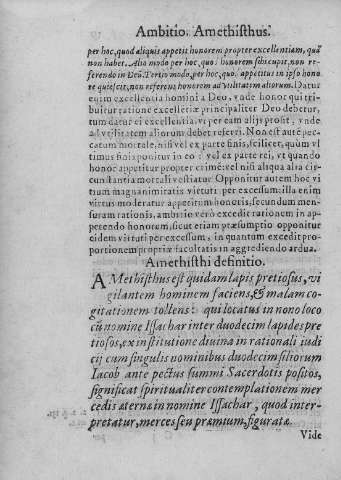 Ambitio. Amethisthus.
per hoc, quod aliquis appetit honorem propter excellentiam, quā
non habet. Alio modo per hoc, quod honorem sibi cupit, non re-
ferendo in Deū. Tertio modo, per hoc, quod appetitus in ipso hono
re quiescit, non referens honorem ad vtilitatem aliorum. Datur
enim excellentia homini a Deo, vnde honor qui tri-
buitur ratione excellētiæ principaliter Deo debetur,
tum datur ei excellentia, vt per eam alijs prosit, vnde
ad vtilitatem aliorum debet referri. Non est autē pec-
catum mortale, nisi vel ex parte finis, scilicet, quùm vl
timus finis ponitur in eo: vel ex parte rei, vt quando
honor appetitur propter crimē: vel nisi aliqua alia cir-
cunstantia mortali vestiatur. Opponitur autem hoc vi
tium magnanimitatis virtuti per excessum: illa enim
virtus moderatur appetitum honoris, secundum men-
suram rationis, ambitio verò excedit rationem in ap-
petendo honorum, sicut etiam præsumptio opponitur
eidem virtuti per excessum, in quantum excedit pro-
portionem propriæ facultatis in aggrediendo ardua.
Amethisthi definitio.
AMethisthus est quidam lapis pretiosus, vi
gilantem hominem faciens, & malam co-
gitationem tollens: qui locatus in nono loco
cū nomine Issachar inter duodecim lapides pre
tiosos, ex institutione diuina in rationali iudi
cij cum singulis nominibus duodecim filiorum
Iacob ante pectus summi Sacerdotis positos,
significat spiritualiter contemplationem mer
cedis æternæ in nomine Issachar, quod inter-
pretatur, merces seu præmium, figuratæ.
Vide